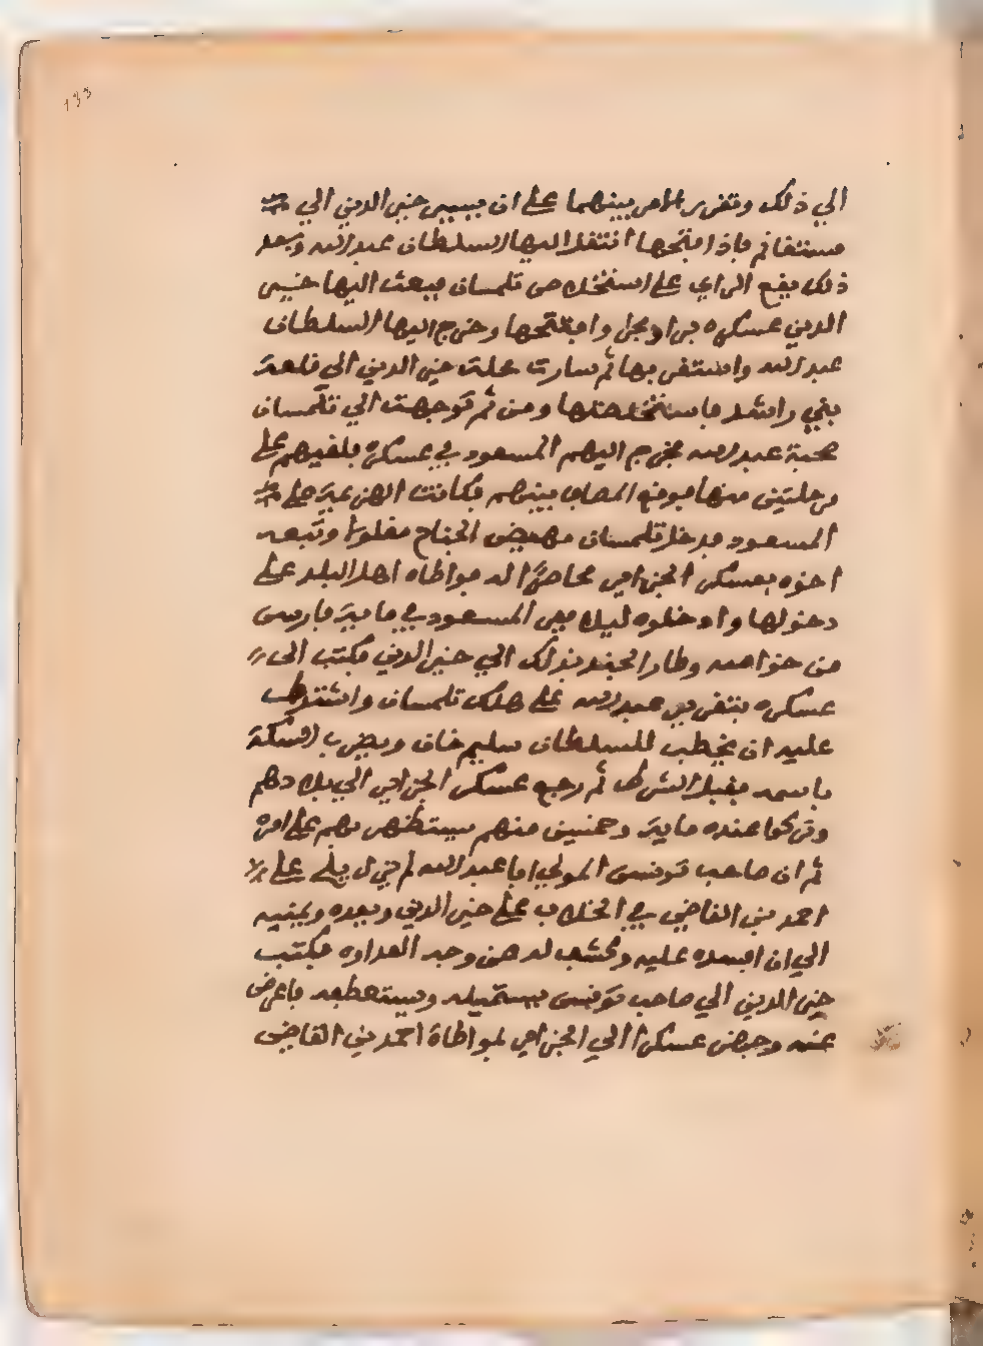 ١٣٣
الي ذلك وتقرر الامر بينهما على ان يسير خير الدين الي
مستغانم فإذا فتحها انتقل اليها السلطان عبد الله وبعد
ذلك يقع الراي على استخلاص تلمسان فبعث اليها خير
الدين عسكره برا وبحرا وافتتحها وخرج اليها السلطان
عبد الله واستقر بها ثم سارت محلة خير الدين الي قلعة
بني راشد فاستخلصتها ومن ثم توجهت الي تلمسان
صحبة عبد الله فخرج اليهم المسعود في عسكره فلقيهم على
مرحلتين منها فوقع المصاف بينهم فكانت الهزيمة على
المسعود فدخل تلمسان مهيض الجناح مفلولا وتبعه
اخوه بعسكر الجزاير محاصرًا له فواطاه اهل البلد على
دخولها وادخلوه ليلا ففر المسعود في ماية فارس
من خواصه وطار الخبر بذلك الي خير الدين فكتب الى
عسكره بتقرير عبد الله على ملك تلمسان واشترط
عليه ان يخطب للسلطان سليم خان ويضرب السكة
باسمه فقبل الشرط ثم رجع عسكر الجزاير الي بلادهم
وتركوا عنده ماية وخمسين منهم يستظهر بهم على امره
ثم ان صاحب تونس المولي ابا عبد الله لم يزل يلح على
احمد بن القاضي في الخلاف على خير الدين ويعده ويمنيه
الي ان افسده عليه وكشف له عن وجه العداوه فكتب
خير الدين الي صاحب تونس يستميله ويستعطفه فاعرض
عنه وجهز عسكرا الي الجزاير لمواطاة احمد بن القاضي